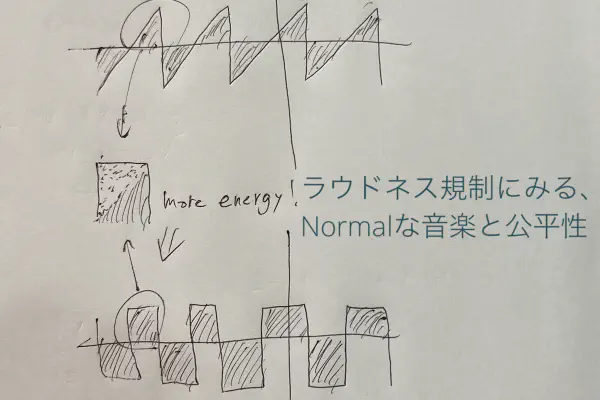 more energy!
ラウドネス規制にみる、
Normalな音楽と公平性